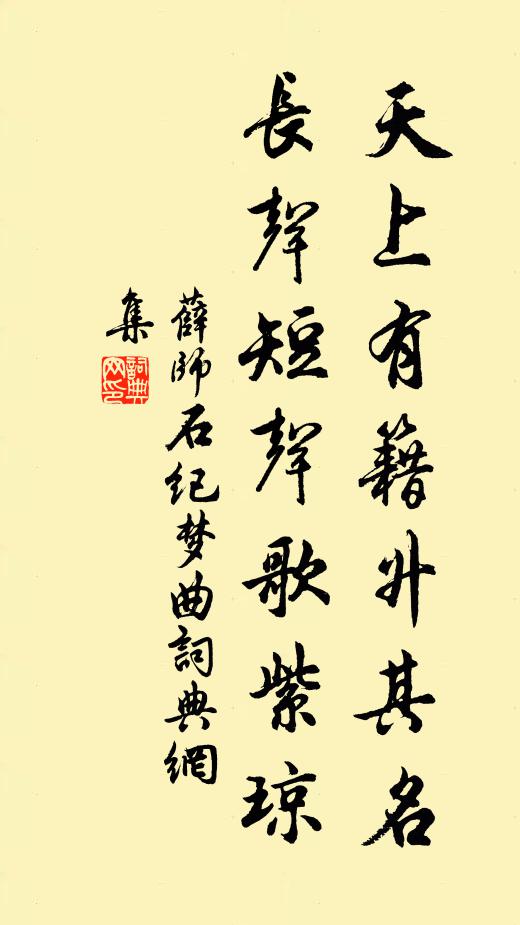 天上有籍升其名
長聲短聲歌紫琼
薛師石纪梦曲詞典網
集
詞典网印